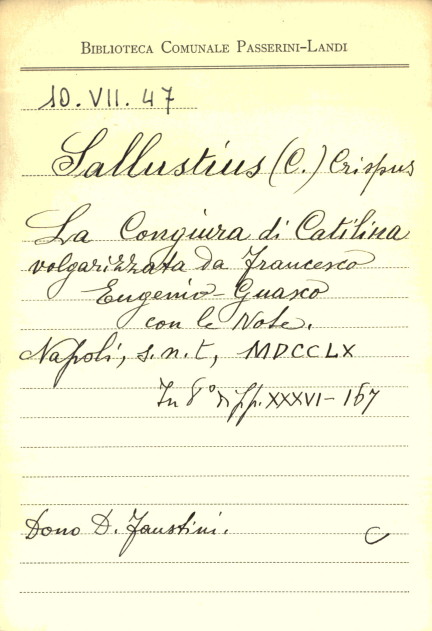 BIBLIOTECA COMUNALE PASSERINI-LANDI
10.VII.47
Sallustius (C.) Crispus
La Congiura di Catilina
volgarizzata da Francesco
Eugenio Guasco
con le Note.
Napoli, s.n.t, MDCCLX
In 8° di pp. XXXVI-167
Dono D. Faustini.
C